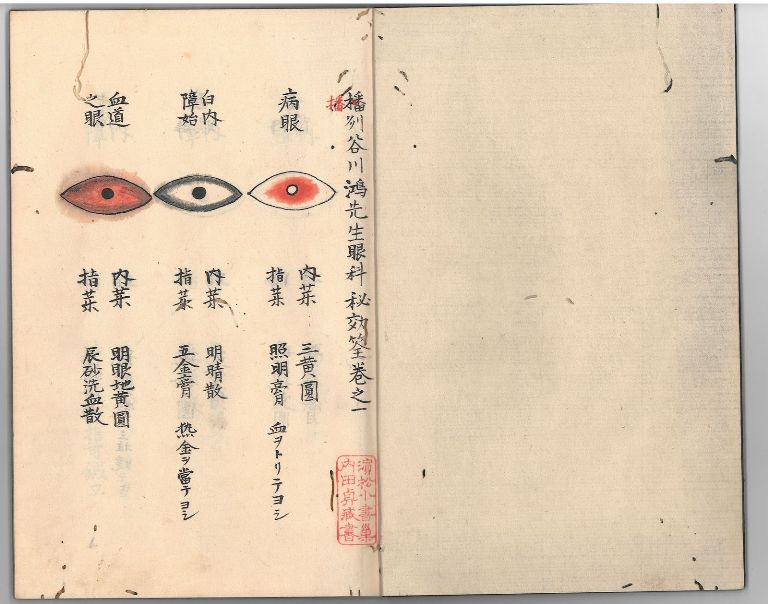 播州谷川鴻先生眼科秘効筌巻之一
播
病眼
内薬 三黄圓
指薬 照明膏 血ヲトリテヨシ
白内
障始
内薬 明晴散
指薬 五金膏 熱金ヲ當テヨシ
血道
之眼
内薬 明眼地黄圓
指薬 辰砂洗血散
濱松小書巣
内田貞蔵書